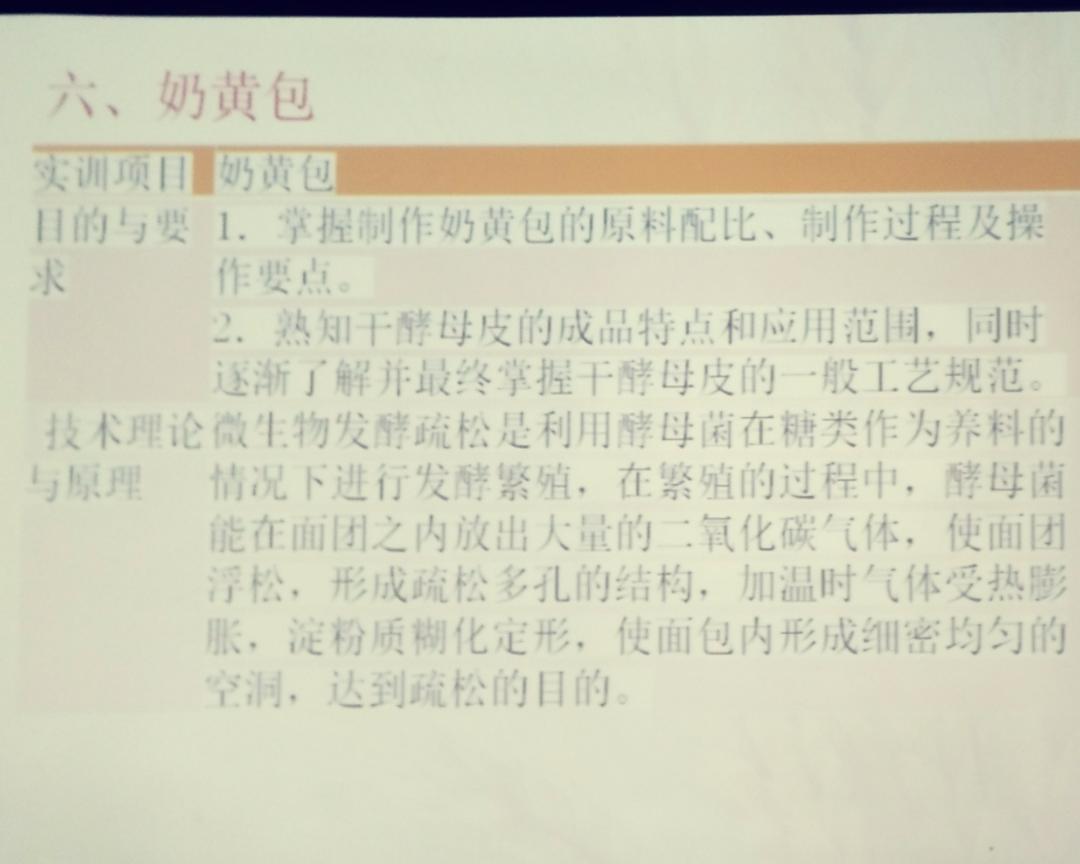 六、奶黄包
实训项目 奶黄包
目的与要 1. 掌握制作奶黄包的原料配比、制作过程及操
求 作要点。
2. 熟知干酵母皮的成品特点和应用范围，同时
逐渐了解并最终掌握干酵母皮的一般工艺规范。
技术理论 微生物发酵疏松是利用酵母菌在糖类作为养料的
与原理 情况下进行发酵繁殖，在繁殖的过程中，酵母菌
能在面团之内放出大量的二氧化碳气体，使面团
浮松，形成疏松多孔的结构，加温时气体受热膨
胀，淀粉质糊化定形，使面包内形成细密均匀的
空洞，达到疏松的目的。